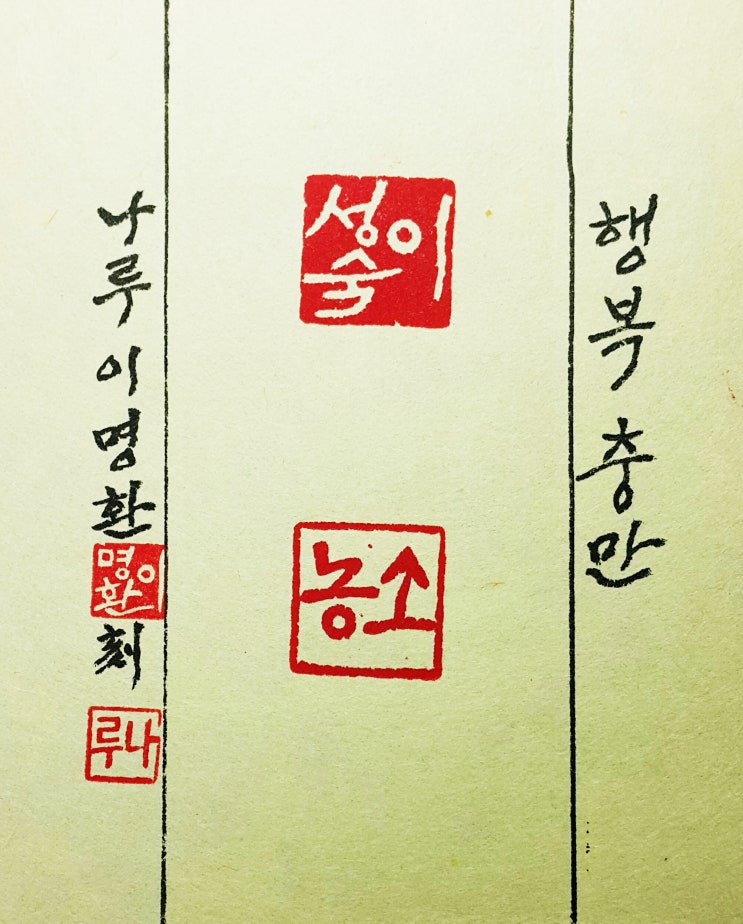 행복충만
이성술
소농
나루 이명환
이명환
刻
나루